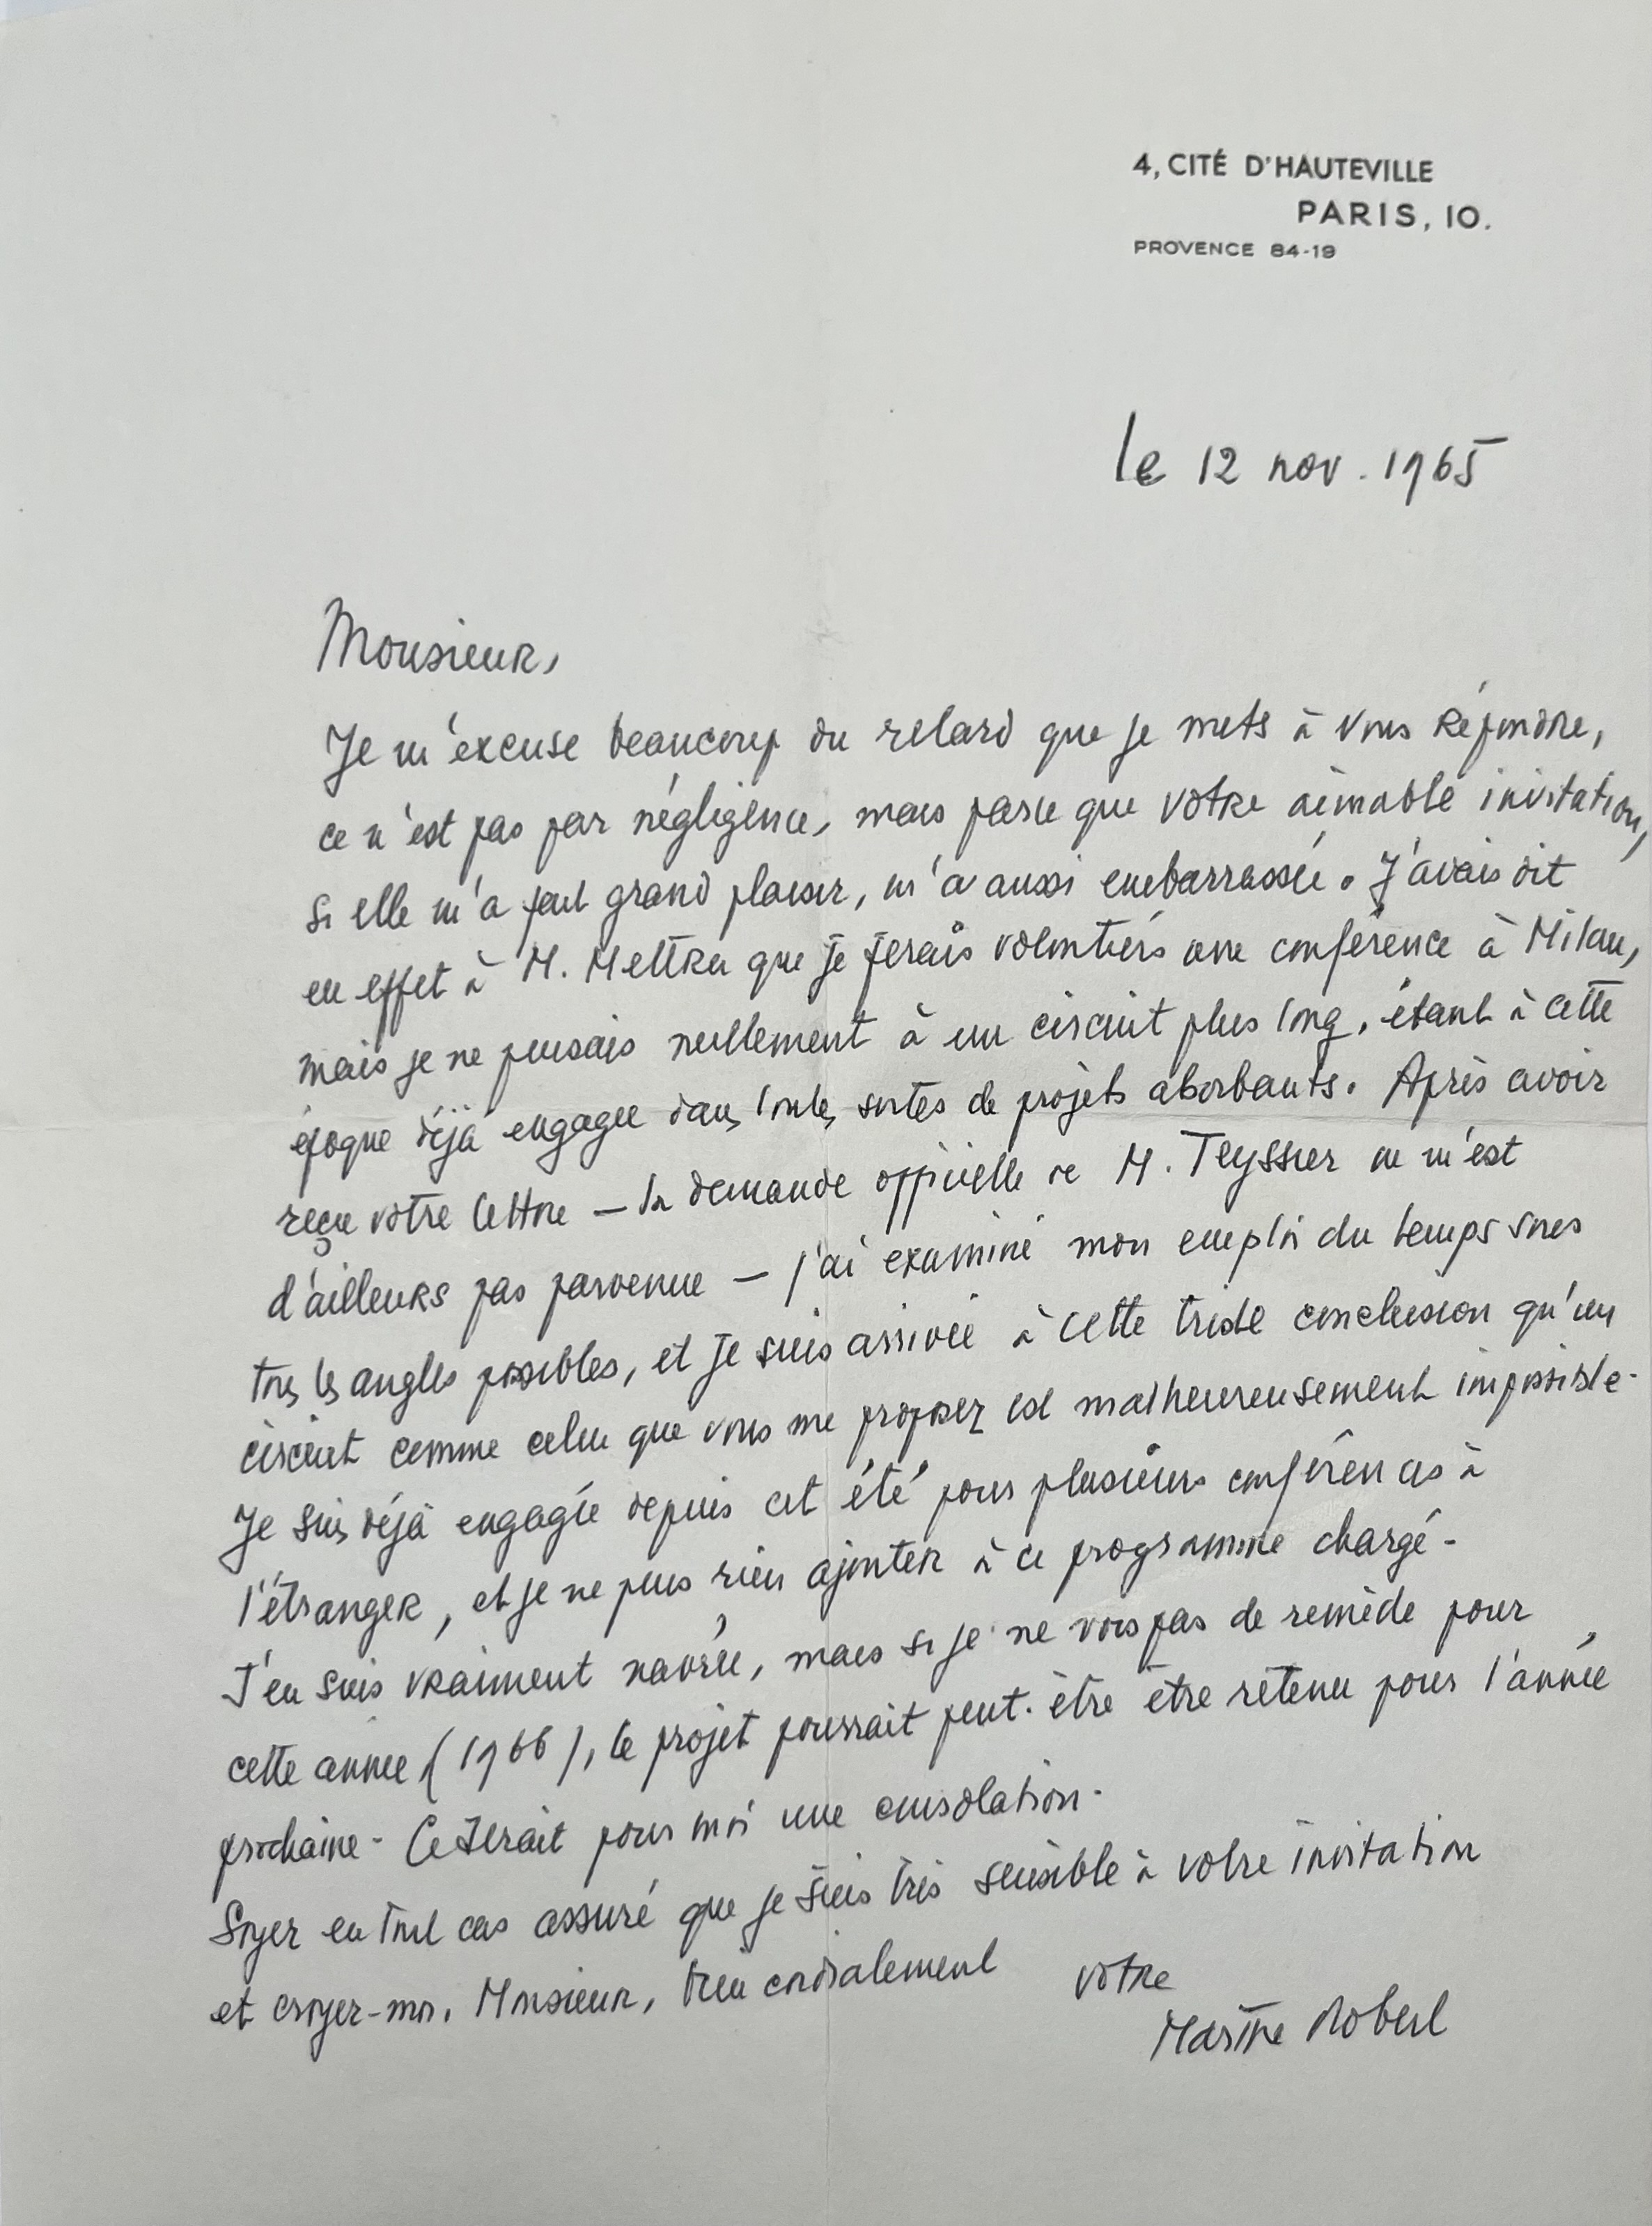 4, CITÉ D'HAUTEVILLE
PARIS, 10.
PROVENCE 84-19
le 12 nov. 1965
Monsieur,
Je m'excuse beaucoup du retard que je mets à vous répondre,
ce n'est pas par négligence, mais parce que votre aimable invitation,
si elle m'a fait grand plaisir, m'a aussi embarrassée. J'avais dit
en effet à M. que je ferais volontiers une conférence à Milan,
mais je ne pensais nullement à un circuit plus long, étant à cette
époque déjà engagée dans toutes sortes de projets absorbants. Après avoir
reçu votre lettre – la demande officielle de M. Teyssier ne m'est
d'ailleurs pas parvenue – j'ai examiné mon emploi du temps sous
tous les angles possibles, et je suis arrivée à cette triste conclusion qu'un
circuit comme celui que vous me proposez est malheureusement impossible.
Je suis déjà engagée depuis cet été pour plusieurs conférences à
l'étranger, et je ne puis rien ajouter à ce programme chargé.
J'en suis vraiment navrée, mais si je ne vois pas de remède pour
cette année (1966), le projet pourrait peut-être être retenu pour l'année
prochaine. Ce serait pour moi une consolation.
Soyez en tout cas assuré que je suis très sensible à votre invitation
et croyez-moi, Monsieur, bien cordialement
votre
Marthe Robert